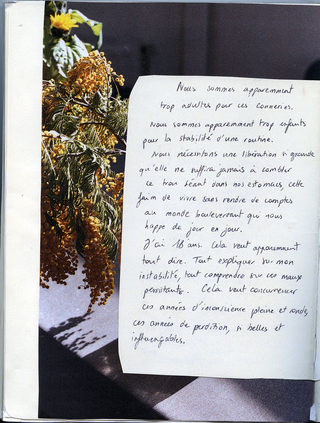 Nous sommes apparemment
trop adultes pour ces conneries.
Nous sommes apparemment trop enfants
pour la stabilité d'une routine.
Nous nécessitons une libération si grande
qu'elle ne suffira jamais à combler
ce trou béant dans nos estomacs, cette
faim de vivre sans rendre de comptes
au monde bouleversant qui nous
happe de jour en jour.
J'ai 18 ans. Cela veut apparemment
tout dire. Tout expliquer sur mon
instabilité, tout comprendre sur ces maux
persistants. Cela veut
ces années d'inconscience pleine et ronde,
ces années de perdition, si belles et